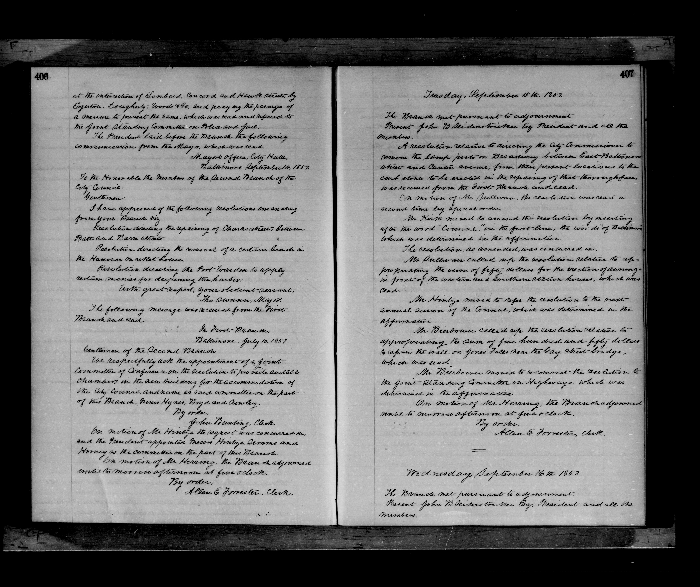 406
at the intersection of Lombard, Concord and Hawk streets by
Edgerton, Dougherty, Woods &Co, and praying the passage of
a measure to prevent the same, which was read and referred to
the Joint Standing Committee on Police and Jail.
The President laid before the Branch the following
communication from the Mayor, which was read.
Mayor's Office, City Hall
Baltimore September 14, 1857
To the Honorable the Members of the Second Branch of the
City Council
Gentlemen
I have approved of the following resolutions emanating
from your Branch viz
Resolution directing the repaving of Charles street between
Pratt and streets
Resolution directing the removal of a certain bench in
the Hanover Market house
Resolution directing the Port Warden to apply
certain monies for deepening the harbor
With great respect, your obedient servant,
Tho Swann, Mayor.
The following message was received from the First
Branch and read.
In First Branch
Baltimore July 10, 1857
Gentlemen of the Second Branch
We respectfully ask the appointment of a Joint
Committee of Conference on the resolution to provide suitable
Chambers in the new building for the accommodation of
the City Council and name as said committee on the part
of this Branch Messrs Hynes, Boyd and
By order,
John Clerk.
On motion of Mr the request was concurred in
and the President appointed Messrs and
on the committee on the part of this Branch.
On motion of Mr the Branch adjourned
until to morrow afternoon at four o'clock.
By order.
Allan E Forrester, Clerk.
407
Tuesday, September 15th, 1857
The Branch met pursuant to adjournment
Present John B Seidenstricker Esq President and all the
members.
A resolution relative to directing the City Commissioner to
remove the lamp posts on Broadway between East Baltimore
street and Canton avenue, from their present locations to the
curb stone to be erected in the repaving of that thoroughfare
was received from the First Branch and read.
On motion of Mr the resolution was read a
second time by special order.
Mr moved to amend the resolution by inserting
after the word in the first line, the words of Baltimore
which was determined in the affirmative
The resolution as amended, was concurred in.
Mr called up the resolution relative to ap-
propriating the sum of fifty dollars for the erection of awning
in front of the western and southern station houses, which was
read.
Mr moved to refer the resolution to the next
annual session of the Council, which was determined in the
affirmative
Mr called up the resolution relative to
appropriating the sum of four hundred and fifty dollars
to repair the wall on Jones Falls near the Gay street bridge,
which was read.
Mr moved to recommit the resolution to
the Joint Standing Committee on Highways which was
determined in the affirmative
On motion of Mr the Branch adjourned
until to morrow afternoon at four o'clock.
By order.
Allan E Forrester, Clerk.
Wednesday September 16th 1857
The Branch met pursuant to adjournment
Present John B Seidenstricker Esq. President and all the
members.